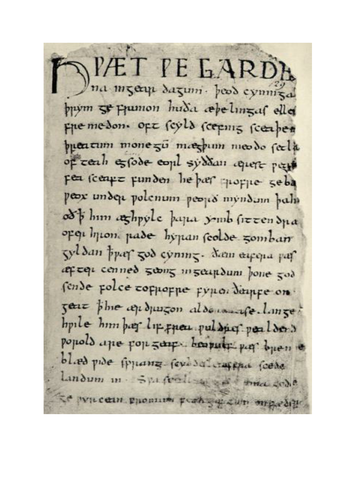 HǷÆT ǷE GARDE
na ingear dagum. þeod cyninga
þrym ge frunon huða æþelingas elle
fre medon. oft scyld scefing sceaþe
þreatum monegū mægþum meodo setla
of teah egsode eorl syððan ærest ƿear
fea sceaft funden he þæs frofre geba
ƿeox under ƿolcnum ƿeorð myndum þah
oð ꝥ him æghƿylc þara ymb sittendra
ofer hron rade hyran scolde gomban
gyldan ꝥ ƿæs god cyning. ðæm eafera ƿæs
æfter cenned geong ingeardum þone god
sende folce tofrofre fyren ðearfe on
geat ꝥ hie ær drugon lange
hƿile him þæs lif frea ƿuldres ƿealdend
ƿorold are for geaf. beoƿulf ƿæs breme
blæd ƿide sprang scyldes eafera scede
landum in. Sƿa gode
ge ƿyrcean fromum